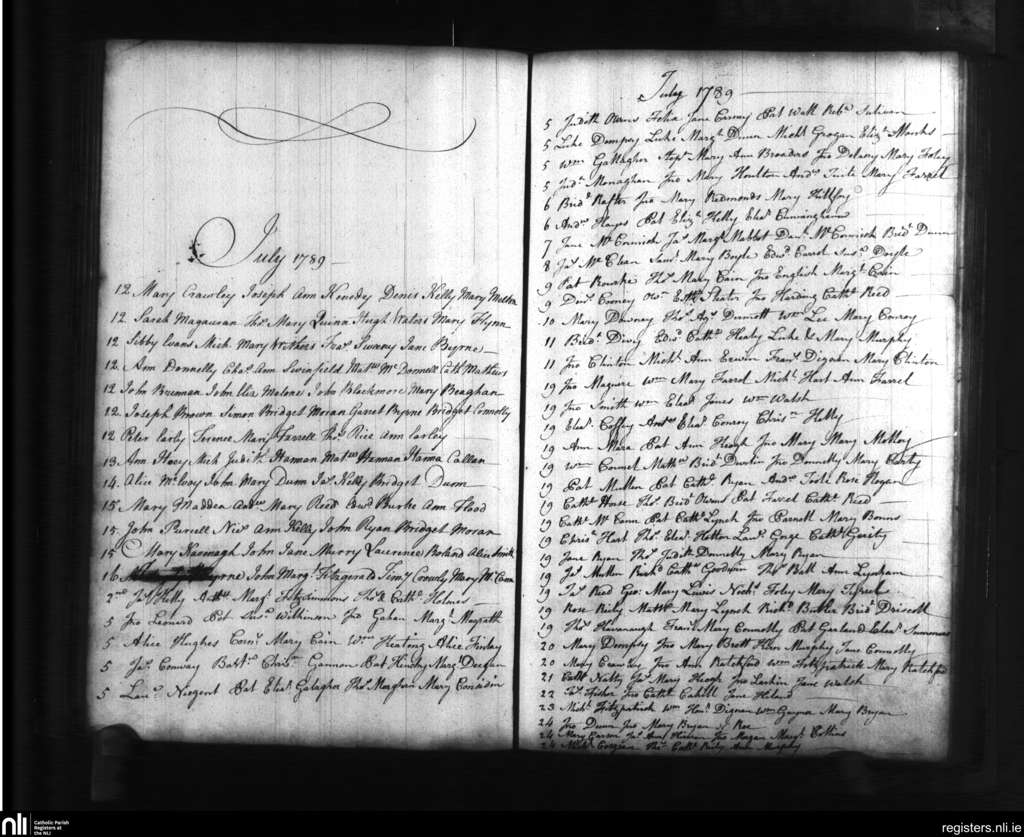 July 1789
12 Mary Crawley Joseph Ann Kenedey Denis Kelly Mary
12 Sarah Magauran Thos Mary Quinn Hugh Waters Mary Flynn
12 Sibby Evans Mich Mary Fras Sweeny Jane Byrne
12 Ann Donnelly Chas Ann Swinfield Matths McDonnell Cath Mathews
12 John Brennan John Eliz Malone John Blackmore Mary Beaghan
12 Joseph Brown Simon Bridget Moran Garret Byrne Bridget Connolly
12 Peter Carly Terence Mary Farrell Thos Rice Ann Carley
13 Ann Stacy Mich Judith Hannan Hannan Callan
14 Alice McCoy John Mary Dunn Jas Kelly Bridget Dunn
15 Mary Madden Andw Mary Reed Edwd Burke Ann Flood
15 John Purcell Nics Ann Kelly John Ryan Bridget Moran
15 Mary Kavanagh John Jane Murry Laurence Borland Alice Smith
16 Byrne John Margt Fitzgerald Timy Crowly Mary McCann
2nd Jas Kelly Arthr Margt Fitzsimmons Thos & Cathe Holmes
5 Jno Leonard Pat Susa Wilkinson Jno Gahan Margt Magrath
5 Alice Hughes Cors Mary Cain Wm Keating Alice Finlay
5 Jas Conway Bartw Christn Gannon Pat Kenedy Margt Deegan
5 Laue Niegent Pat Elizth Galagher Thos Mary Considin
July 1789
5 Judith Felix Jane Pat Wall Rebca Sulivan
5 Luke Dempsy Luke Margt Dunn Michl Grogan Elizth
5 Wm Gallagher Stepn Mary Ann Broaders Jno Delany Mary Foley
5 Judh Monaghan Jno Mary Houlton Andw Tuite Mary Farrel
6 Bridt Rafter Jno Mary Redmonds Mary
6 Andw Hayes Pat Elizth Kelly Elear Cunningham
7 Jane McCormick Jas Margt Mabbot Danl McCormick Bridt Dunn
8 Jas McClean Saml Mary Boyle Edwd Carrol Susa Doyle
9 Pat Rourke Thos Mary Cain Jno English Margt Cain
9 Jno Harding Cathe Reed
10 Mary Downey Thos Dermott Wm Lee Mary Conroy
11 Bridt Edwd Cathe Healy Luke & Mary Murphy
11 Jno Clinton Michl Ann Erwin Frans Dignan Mary Clinton
19 Jno Maguire Wm Mary Farrel Michl Hart Ann Farrel
19 Jno Smith Wm Elear Jones Wm Walsh
19 Elear Coffey Andw Elear Conroy Christn Kelly
19 Ann Mara Pat Ann Keogh Jno Mary Mary Molloy
19 Wm Mathw Bridt Jno Donnelly Mary
19 Pat Mullen Pat Cathe Ryan Andw Rose Hogan
19 Cathe House Thos Bridt Pat Farrel Cathe Reed
19 Cathe McCann Pat Cathe Lynch Jno Parnell Mary Bonns
19 Christr Hart Thos Elear Law Cathe Garity
19 Jane Ryan Thos Judith Donnelly Mary Ryan
19 Jas Mullen Richd Cathe Goodwin Thos Ball Ann Lynham
19 Jas Reed Geo: Mary Lewis Nichs Foley Mary
19 Rose Riely Mattw Mary Lynch Richd Butler Bridt Driscoll
19 Thos Kavanaugh Frans Mary Connolly Pat Garland Elear Simmons
20 Mary Dempsy Jno Mary Brett Murphy Jane Connolly
20 Mary Crawley Jno Ann Ratchford Wm Fitzpatrick Mary Ratchford
21 Cathe Nalty Jas Mary Keogh Jno Larkin Jane Walsh
22 Jas Fisher Jno Cathe Cahill Jane
23 Michl Fitzpatrick Wm Dignan Wm Gaynor Mary Bryan
24 Jno Dunn Jno Mary Bryan
24 Mary Jas Ann Jno Magan Margt Collins
24 Michl Thos Cathe Riely Ann Murphy
nli Catholic Parish
Registers at
the NLI
registers.nli.ie